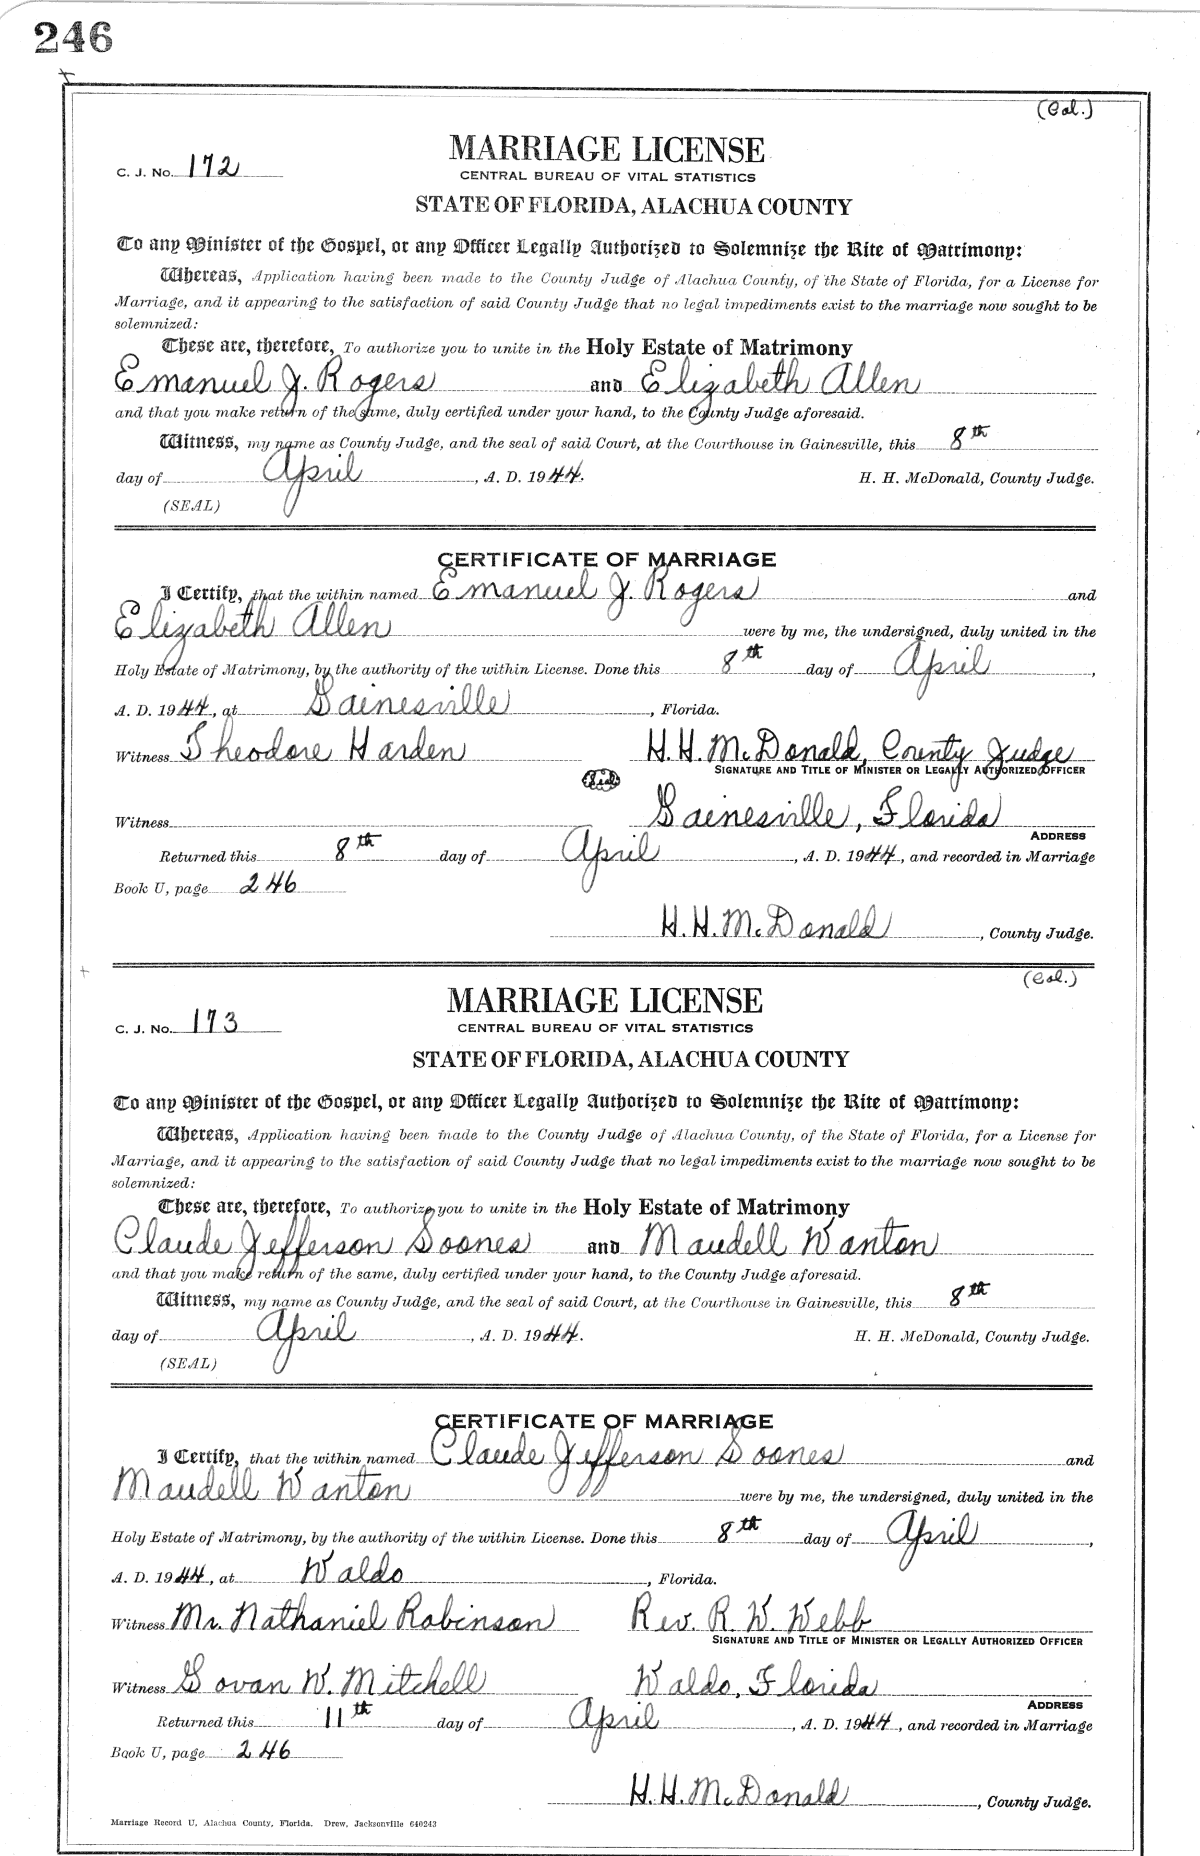 246
(Col.)
MARRIAGE LICENSE
C. J. No. 172
CENTRAL BUREAU OF VITAL STATISTICS
STATE OF FLORIDA, ALACHUA COUNTY
To any Minister of the Gospel, or any Officer Legally Authorized to Solemnize the Rite of Matrimony:
Whereas, Application having been made to the County Judge of Alachua County, of the State of Florida, for a License for
Marriage, and it appearing to the satisfaction of said County Judge that no legal impediments exist to the marriage now sought to be
solemnized:
These are, therefore, To authorize you to unite in the Holy Estate of Matrimony
Emanuel J. Rogers and Elizabeth Allen
and that you make return of the same, duly certified under your hand, to the County Judge aforesaid.
Witness, my name as County Judge, and the seal of said Court, at the Courthouse in Gainesville, this 8th
day of April, A. D. 1944. H. H. McDonald, County Judge.
(SEAL)
CERTIFICATE OF MARRIAGE
I Certify, that the within named Emanuel J. Rogers and
Elizabeth Allen were by me, the undersigned, duly united in the
Holy Estate of Matrimony, by the authority of the within License. Done this 8th day of April,
A. D. 1944, at Gainesville, Florida.
Witness Theodore Harden H. H. McDonald, County Judge
(Seal) SIGNATURE AND TITLE OF MINISTER OR LEGALLY AUTHORIZED OFFICER
Witness Gainesville, Florida
ADDRESS
Returned this 8th day of April, A. D. 1944, and recorded in Marriage
Book U, page 246
H. H. McDonald, County Judge.
(Col.)
MARRIAGE LICENSE
C. J. No. 173
CENTRAL BUREAU OF VITAL STATISTICS
STATE OF FLORIDA, ALACHUA COUNTY
To any Minister of the Gospel, or any Officer Legally Authorized to Solemnize the Rite of Matrimony:
Whereas, Application having been made to the County Judge of Alachua County, of the State of Florida, for a License for
Marriage, and it appearing to the satisfaction of said County Judge that no legal impediments exist to the marriage now sought to be
solemnized:
These are, therefore, To authorize you to unite in the Holy Estate of Matrimony
Claude Jefferson Soones and Maudell Wanton
and that you make return of the same, duly certified under your hand, to the County Judge aforesaid.
Witness, my name as County Judge, and the seal of said Court, at the Courthouse in Gainesville, this 8th
day of April, A. D. 1944. H. H. McDonald, County Judge.
(SEAL)
CERTIFICATE OF MARRIAGE
I Certify, that the within named Claude Jefferson Soones and
Maudell Wanton were by me, the undersigned, duly united in the
Holy Estate of Matrimony, by the authority of the within License. Done this 8th day of April,
A. D. 1944, at Waldo, Florida.
Witness Mr. Nathaniel Robinson Rev. R. W. Webb
SIGNATURE AND TITLE OF MINISTER OR LEGALLY AUTHORIZED OFFICER
Witness Govan W. Mitchell Waldo, Florida
ADDRESS
Returned this 11th day of April, A. D. 1944, and recorded in Marriage
Book U, page 246
H. H. McDonald, County Judge.
Marriage Record U, Alachua County, Florida. Drew, Jacksonville 640243